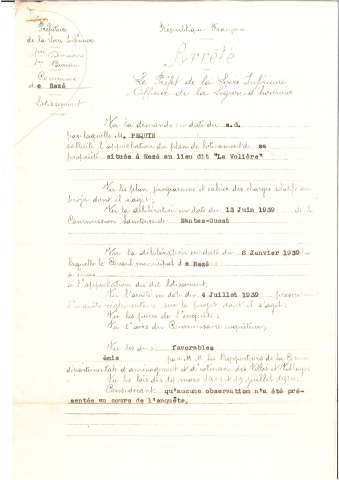 Préfecture
de la Loire Inférieure
République Française
1ère Division
2e Bureau
Arrêté
Commune
de Rezé
Lotissement
Le Préfet de la Loire Inférieure
Officier de la Légion d'honneur
Vu la demande en date du s.d.
par laquelle M. PEQUIN
sollicite l'approbation du plan de lotissement de sa
propriété située à Rezé au lieu dit "La Volière"
Vu les plan programme et cahier des charges relatifs au
projet dont il s'agit;
Vu la délibération en date du 13 Juin 1939 de la
Commission Sanitaire de Nantes-Ouest
Vu la délibération en date du 8 Janvier 1939 par
laquelle le Conseil municipal de Rezé
à l'approbation du dit lotissement;
Vu l'arrêté en date du 4 Juillet 1939 prescrivant
l'enquête réglementaire sur le projet dont il s'agit;
Vu les pièces de l'enquête;
Vu l'avis du Commissaire enquêteur;
Vu les avis favorables
émis par M.M. les Rapporteurs de la Commission
départementale d'aménagement et d'extension des Villes et Villages
Vu les lois des 14 mars 1919 & 19 juillet 1924;
Considérant qu'aucune observation n'a été pré-
sentée au cours de l'enquête,